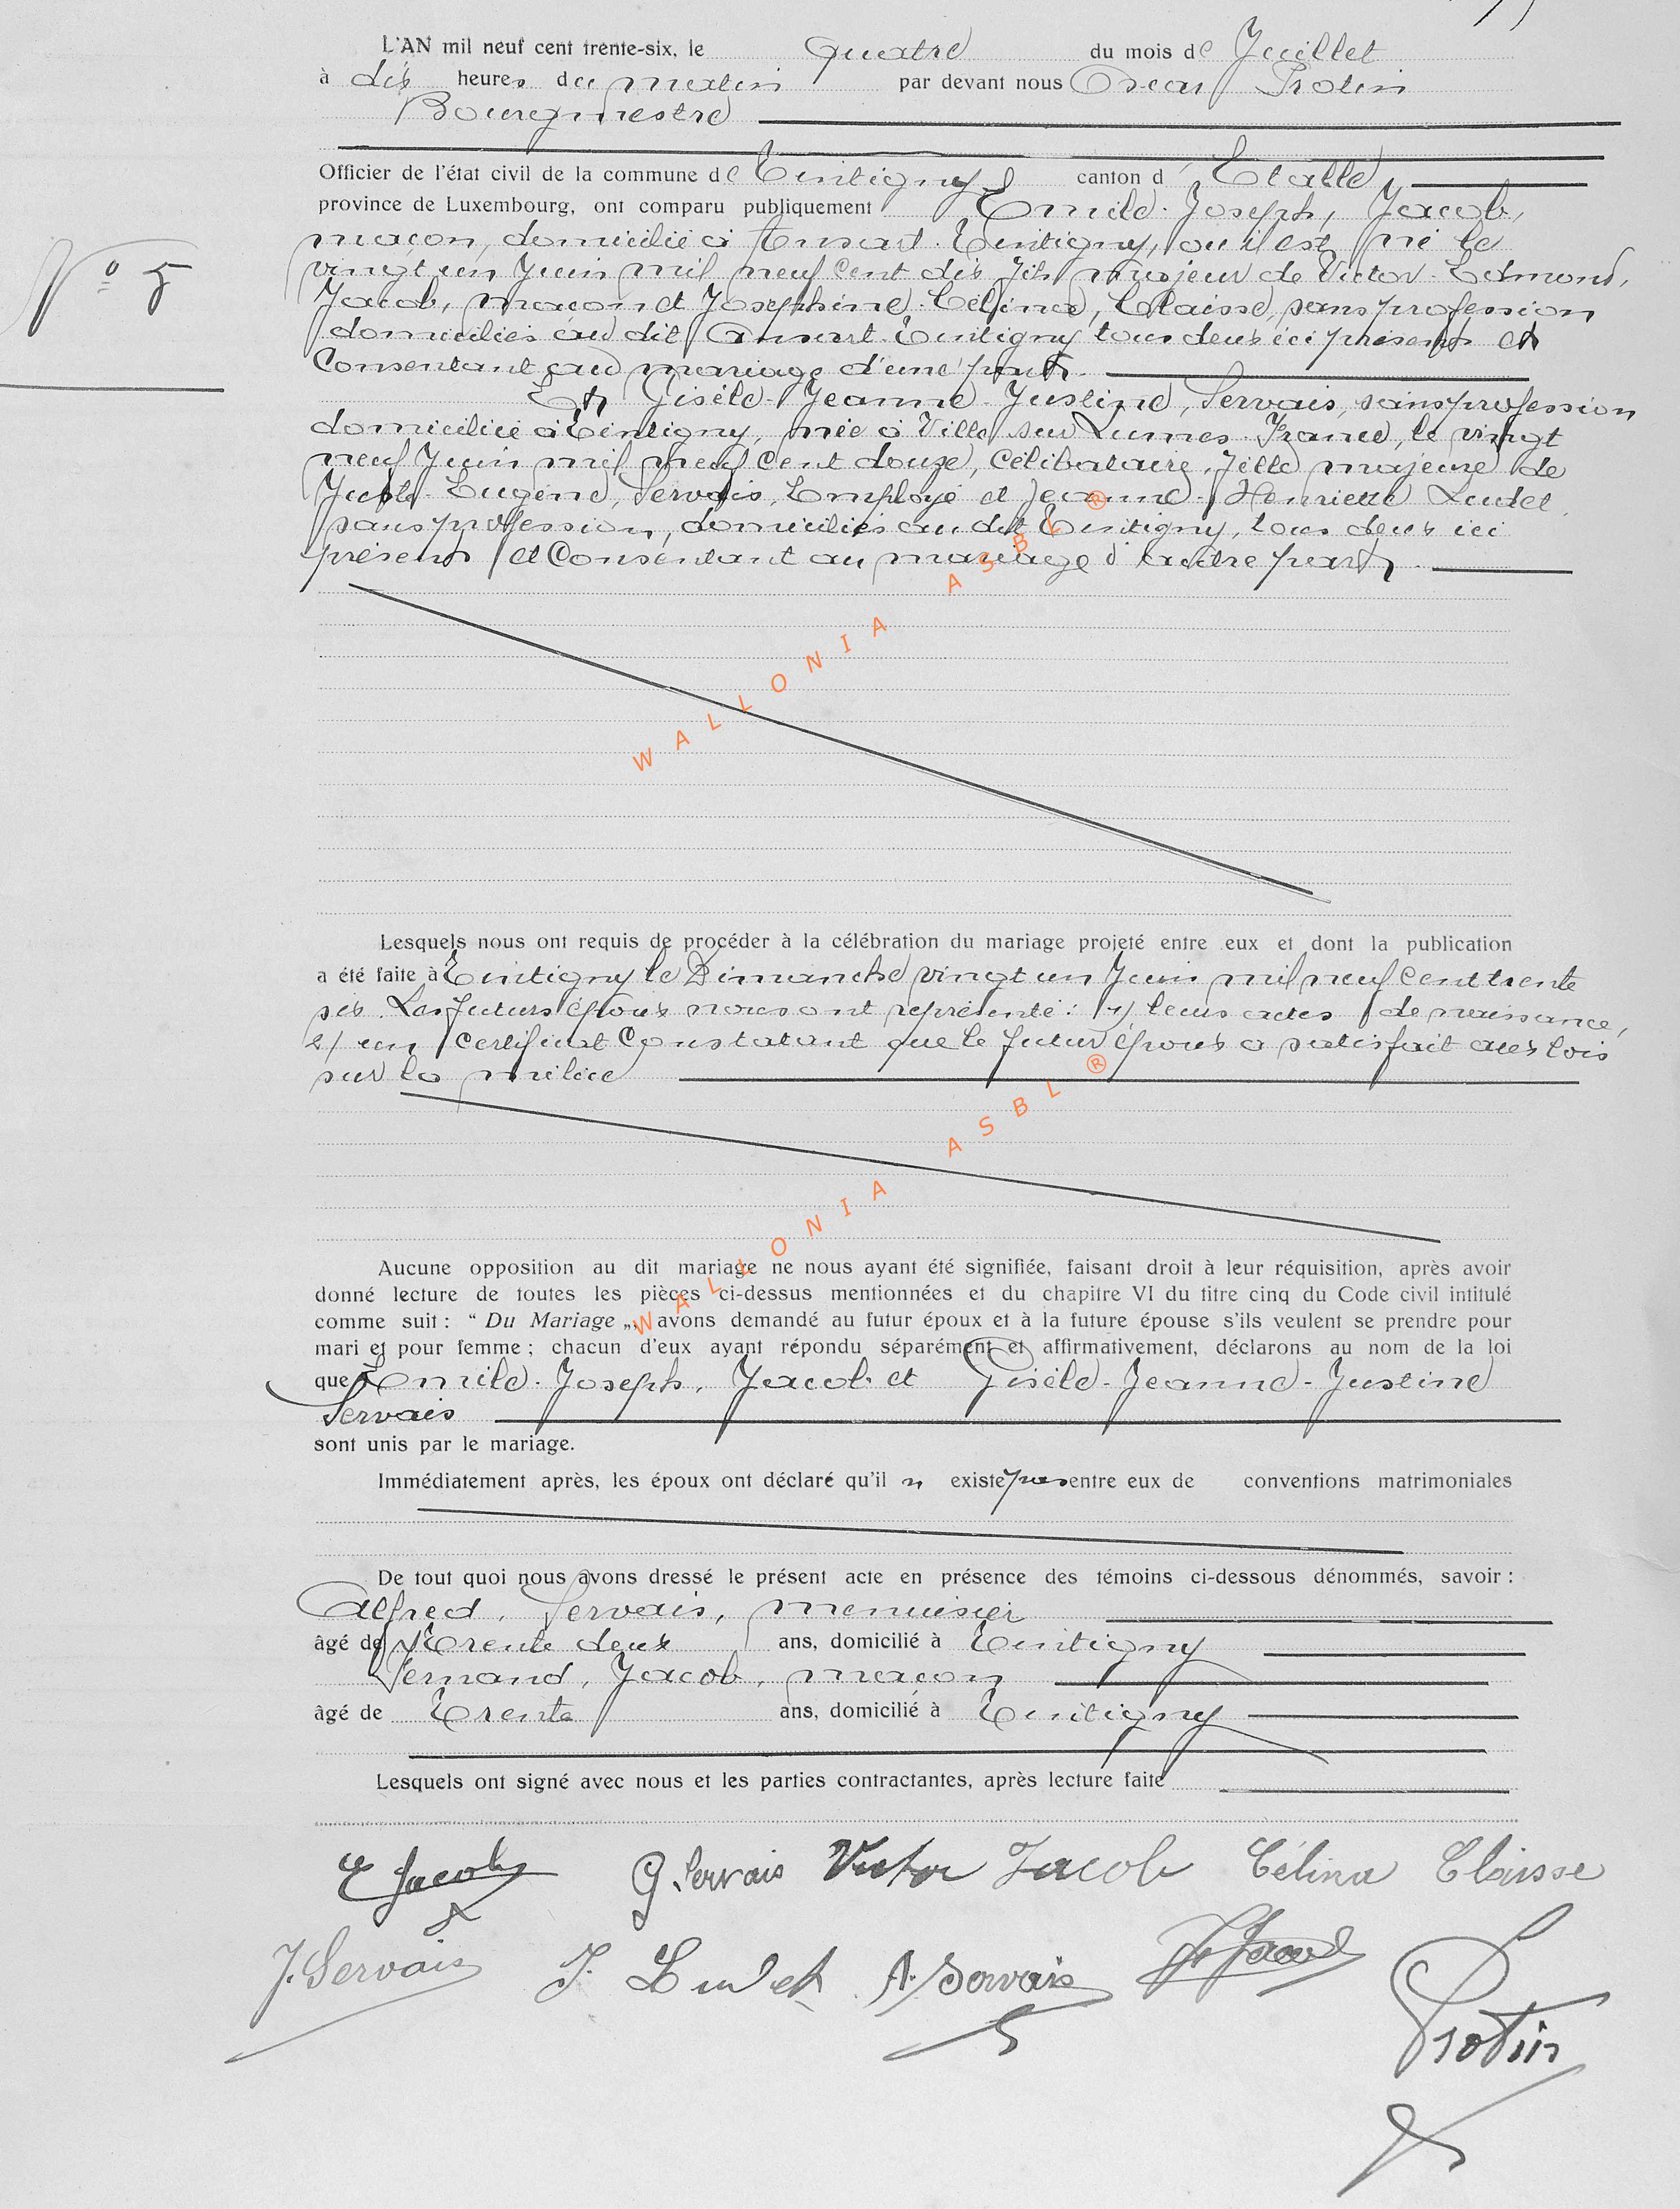 L'AN mil neuf cent trente-six, le quatre du mois de Juillet
à dix heures du matin par devant nous Oscar Protin
Bourgmestre
Officier de l'état civil de la commune de Tintigny canton d' Etalle
province de Luxembourg, ont comparu publiquement Emile-Joseph, Jacob,
N° 5
maçon, domicilié à Ansart-Tintigny, où il est né le
vingt un Juin mil neuf cent dix, fils majeur de Victor-Edmond,
Jacob, maçon et Joséphine-Célina, Claisse, sans profession
domiciliés au dit Ansart-Tintigny tous deux ici présents et
consentant au mariage d'une part.
Et Gisèle-Jeanne-Justine, Servais, sans profession
domiciliée à Tintigny, née à Ville sur Lumes-France, le vingt
neuf Juin mil neuf cent douze, célibataire, fille majeure de
Juste-Eugène, Servais, Employé et Jeanne-Henriette Ludet
sans profession, domiciliés au dit Tintigny, tous deux ici
présents et consentant au mariage d'autre part.
WALLONIA ASBL ®
Lesquels nous ont requis de procéder à la célébration du mariage projeté entre eux et dont la publication
a été faite à Tintigny le Dimanche vingt un Juin mil neuf cent trente
six. Les futurs époux nous ont représenté: 1) leurs actes de naissance,
2) un certificat constatant que le futur époux a satisfait aux lois
sur la milice
WALLONIA ASBL ®
Aucune opposition au dit mariage ne nous ayant été signifiée, faisant droit à leur réquisition, après avoir
donné lecture de toutes les pièces ci-dessus mentionnées et du chapitre VI du titre cinq du Code civil intitulé
comme suit : “ Du Mariage „, avons demandé au futur époux et à la future épouse s'ils veulent se prendre pour
mari et pour femme ; chacun d'eux ayant répondu séparément et affirmativement, déclarons au nom de la loi
que Emile-Joseph, Jacob et Gisèle-Jeanne-Justine
Servais
sont unis par le mariage.
Immédiatement après, les époux ont déclaré qu'il n existe pas entre eux de conventions matrimoniales
De tout quoi nous avons dressé le présent acte en présence des témoins ci-dessous dénommés, savoir :
Alfred, Servais, menuisier
âgé de Trente deux ans, domicilié à Tintigny
Fernand, Jacob, maçon
âgé de Trente ans, domicilié à Tintigny
Lesquels ont signé avec nous et les parties contractantes, après lecture faite
E Jacob G. Servais Victor Jacob Célina Claisse
J. Servais J. Ludet A. Servais F. Jacob
Protin